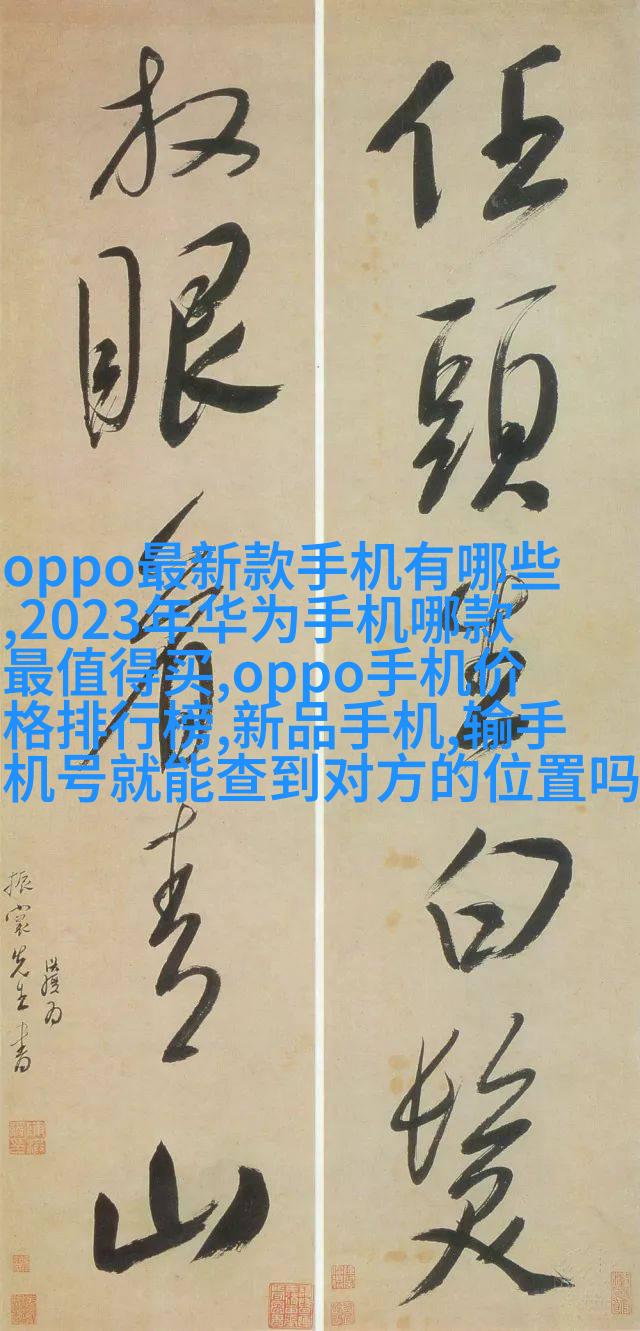 任頭生白髮
放眼看青山
振裳先生書
oppo最新款手机有哪些
,2023年华为手机哪款
最值得买,oppo手机价
格排行榜,新品手机,输手
机号就能查到对方的位置吗